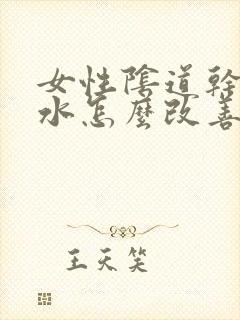 女性陰道幹
水怎麼改善
王天笑